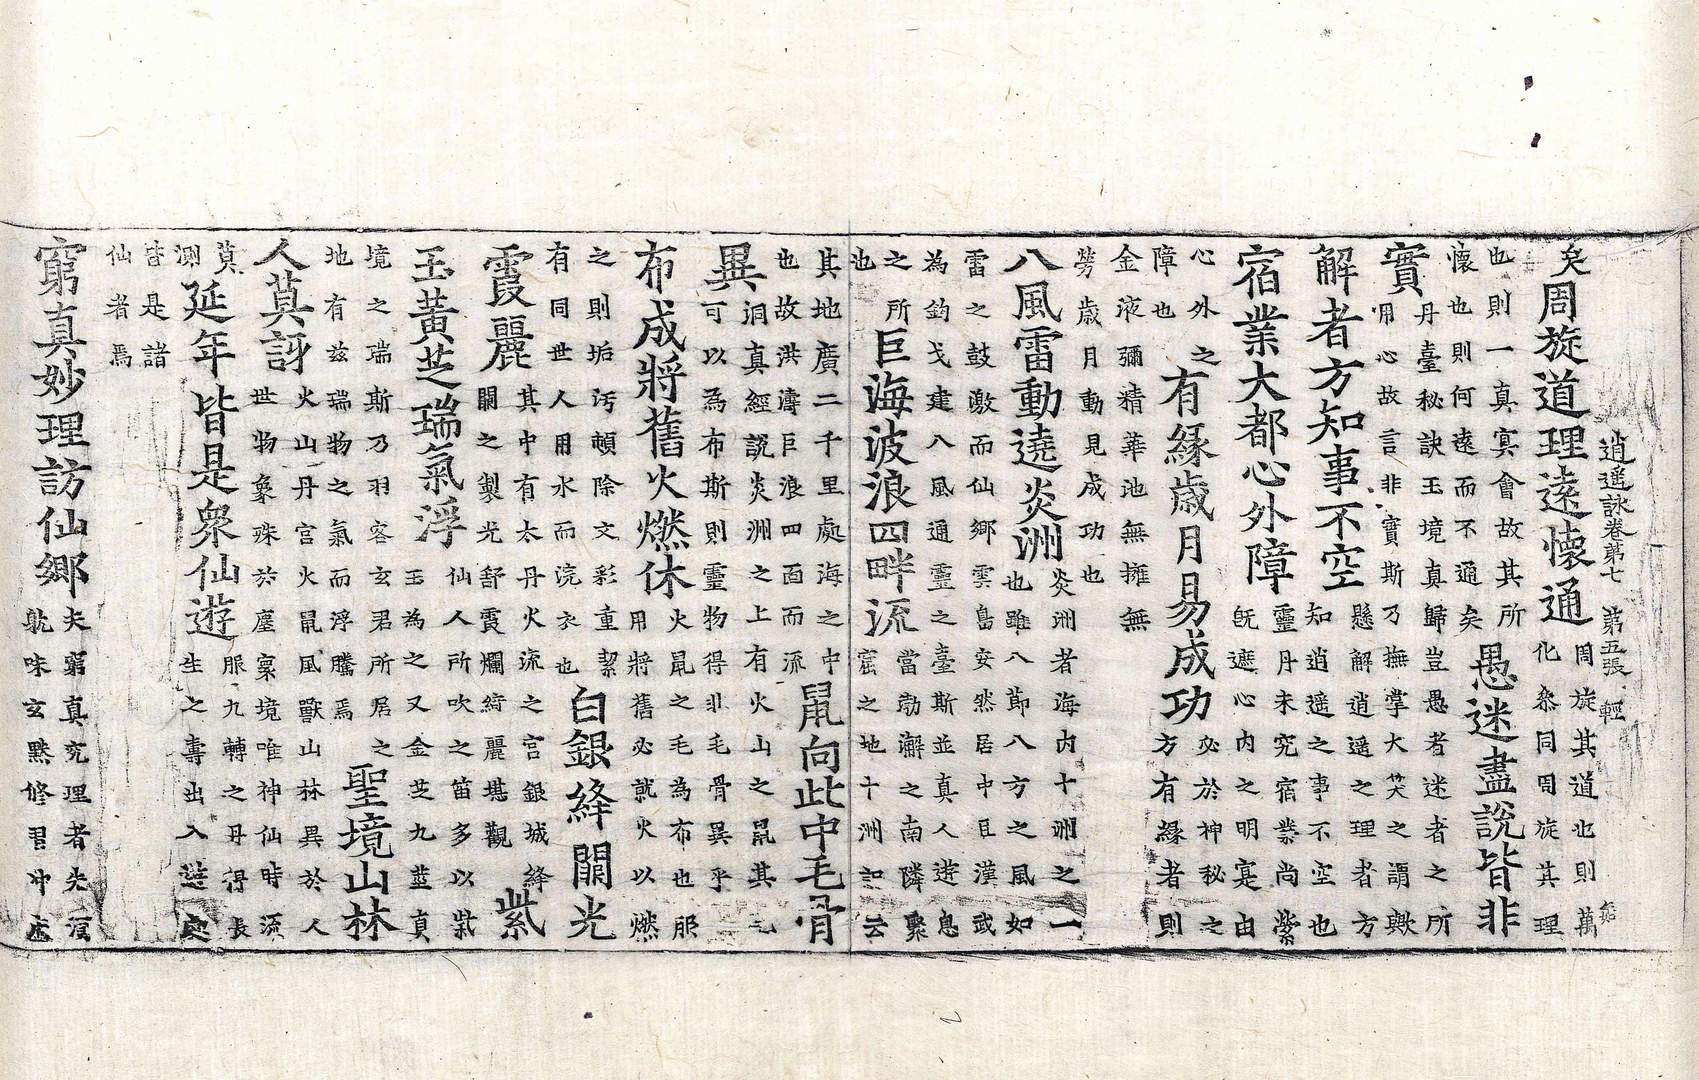 逍遥詠卷第七　第五張　輕
矣周旋道理遠懷通周旋其道也則萬
化叅同周旋其理
也則一真㝠會故其所
懷也則何遠而不通矣愚迷盡說皆非
實丹臺秘訣玉境真歸豈愚者迷者之所
用心故言非實斯乃撫掌大笑之謂歟
解者方知事不空懸解逍遥之理者方
知逍遥之事不空也
宿業大都心外障靈丹未究宿業尚縈
旣遮心内之明寔由
心外之
障也有緣歲月易成功必於神秘之
方有緣者則
金液彌精華池無擁無
勞歲月動見成功也
八風雷動遶炎洲炎洲者海内十洲之一
也雖八節八方之風如
雷之鼓激而仙郷雲島安然居中巨漢武
為鈎戈建八風通靈之臺斯並真人遊息
之所
也巨海波浪四畔流當渤澥之南隣聚
窟之地十洲記云
其地廣二千里處海之中
也故洪濤巨浪四面而流鼠向此中毛骨
異洞真經說炎洲之上有火山之鼠其毛
可以為布斯則靈物得非毛骨異乎
布成將舊火燃休火鼠之毛為布也那
用將舊必就火以燃
之則垢汚頓除文彩重絜
有同世人用水而浣衣也白銀絳闕光
霞麗其中有太丹火流之宫銀城絳
闕之製光舒霞爛綺麗堪觀紫
玉黃芝瑞氣浮仙人所吹之笛多以紫
玉為之又金芝九莖真
境之瑞斯乃羽客玄君所居之
地有兹瑞物之氣而浮騰焉聖境山林
人莫訝火山丹宫火鼠風獸山林異於人
世物象殊於塵寰境唯神仙時流
莫
測延年皆是衆仙遊服九轉之丹得長
生之壽出入遊處
皆是諸
仙者焉
窮真妙理訪仙郷夫窮真究理者先須
躭味玄默修習冲虛